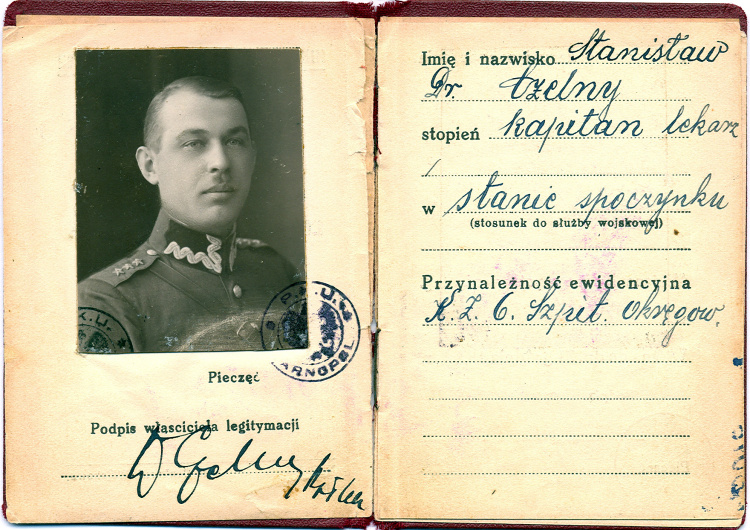 K.U.
P.K.U.
TARNOPOL
Pieczęć
Podpis właściciela legitymacji
Dr Czelny
Imię i nazwisko Stanisław
Dr. Czelny
stopień kapitan lekarz
w stanie spoczynku
(stosunek do służby wojskowej)
Przynależność ewidencyjna
K. Z. 6. Szpit. Okręgow.